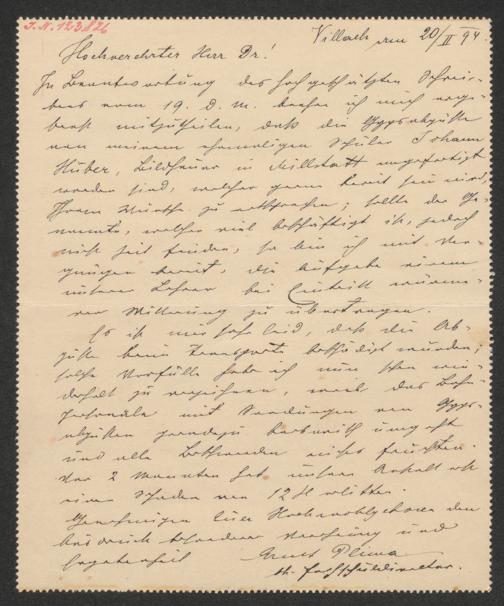 I. N. 123.826
Villach am 20/II 94.
Hochverehrter Herr Dr!
In Beantwortung des hochgeschätzten Schrei-
bens vom 19. d. M. beehre ich mich erge-
benst mitzutheilen, daß die Gypsabgüsse
von meinem ehemaligen Schüler Johann
Huber, Bildhauer in Millstatt angefertigt
worden sind, welcher gern bereit sein wird,
Ihrem Wunsche zu entsprechen; sollte der Ge-
nannte, welcher viel beschäftigt ist, jedoch
nicht Zeit finden, so bin ich mit Ver-
gnügen bereit, die Aufgabe einem
unserer Lehrer bei Eintritt wärme-
rer Witterung zu übertragen.
Es ist mir sehr leid, daß die Ab-
güsse beim Transporte beschädigt wurden;
solche Vorfälle habe ich nun schon wie-
derholt zu verzeichnen, weil das Bahn-
personale mit Sendungen von Gyps-
abgüssen geradezu barbarisch umgeht
und alle Beschwerden nichts fruchten.
Vor 2 Monaten hat unsere Anstalt
einen Schaden von 12 fl erlitten.
Genehmigen Euer Hochwohlgeboren den
Ausdruck besonderer Verehrung und
Ergebenheit
k. Fachschuldirector.